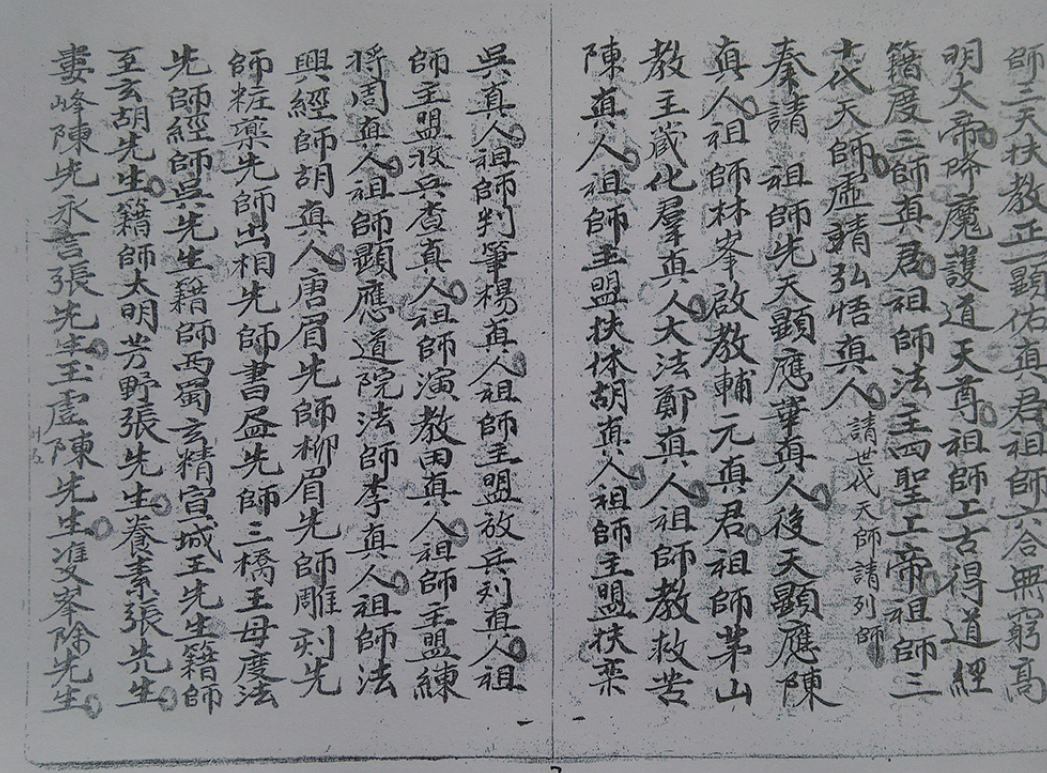 師三天扶教正一顯佑真君祖師六合無窮高
明大帝降魔護道天尊祖師上古得道經
籍度三師真君祖師法主四聖上帝祖師三
十代天師虛靖弘悟真人請世代天師請列師
奏請祖師先天顯應華真人後天顯應陳
真人祖師林峯啟教輔元真君祖師茅山
教主葴化羣真人大法鄭真人祖師教救苦
陳真人祖師主盟扶体胡真人祖師主盟扶栾
吳真人祖師判筆楊真人祖師主盟放兵刘真人祖
師主盟收兵查真人祖師演教田真人祖師主盟練
将周真人祖師顯應道院法師李真人祖師法
興經師胡真人唐眉先師柳眉先師雕刻先
師粧藥先師出相先師書盃先師三橋王母度法
先師經師吳先生籍師西蜀玄精宣城王先生籍師
至玄胡先生籍師太明芳野張先生養素張先生
婁峰陳先永言張先生玉虛陳先生雙峯除先生